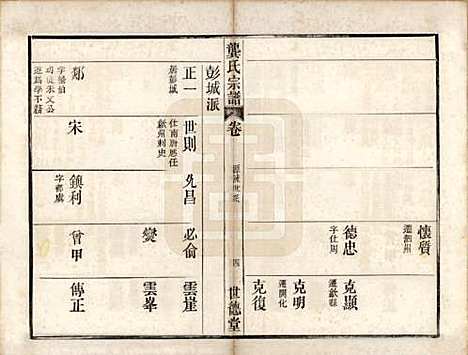 懷質
遷泗州
德忠
字仕周
克顯
遷歙縣
克明
遷開化
克復
龔氏宗譜
卷
源流世系
四
世德堂
彭城派
正一
居彭城
世則
仕南唐歷任
歙州刺史
允昌
必俞
雲崖
燮
雲峯
鄭
字
幼從朱文公
遊爲學不
宋
鎮利
字都虞
曾甲
傳正